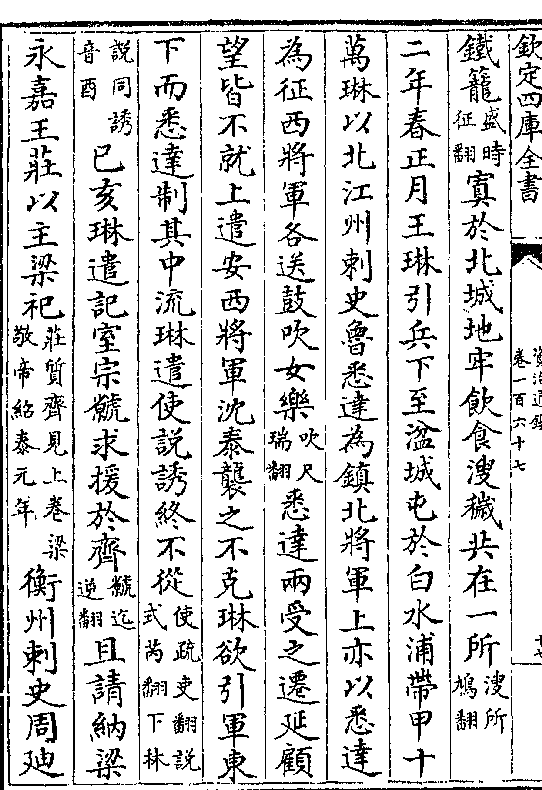 欽定四庫全書
資治通鑑
卷一百六十七
十七
鐵籠盛時征翻寘於北城地牢飲食溲穢共在一所溲所鳩翻
二年春正月王琳引兵下至湓城屯於白水浦帶甲十
萬琳以北江州刺史魯悉達為鎮北將軍上亦以悉達
為征西將軍各送鼓吹女樂吹尺瑞翻悉達兩受之遷延顧
望皆不就上遣安西將軍沈泰襲之不克琳欲引軍東
下而悉達制其中流琳遣使說誘終不從使疏吏翻說式芮翻下林
說同誘音酉己亥琳遣記室宗虩求援於齊虩迄逆翻且請納梁
永嘉王莊以主梁祀莊質齊見上卷梁敬帝紹泰元年衡州刺史周迪